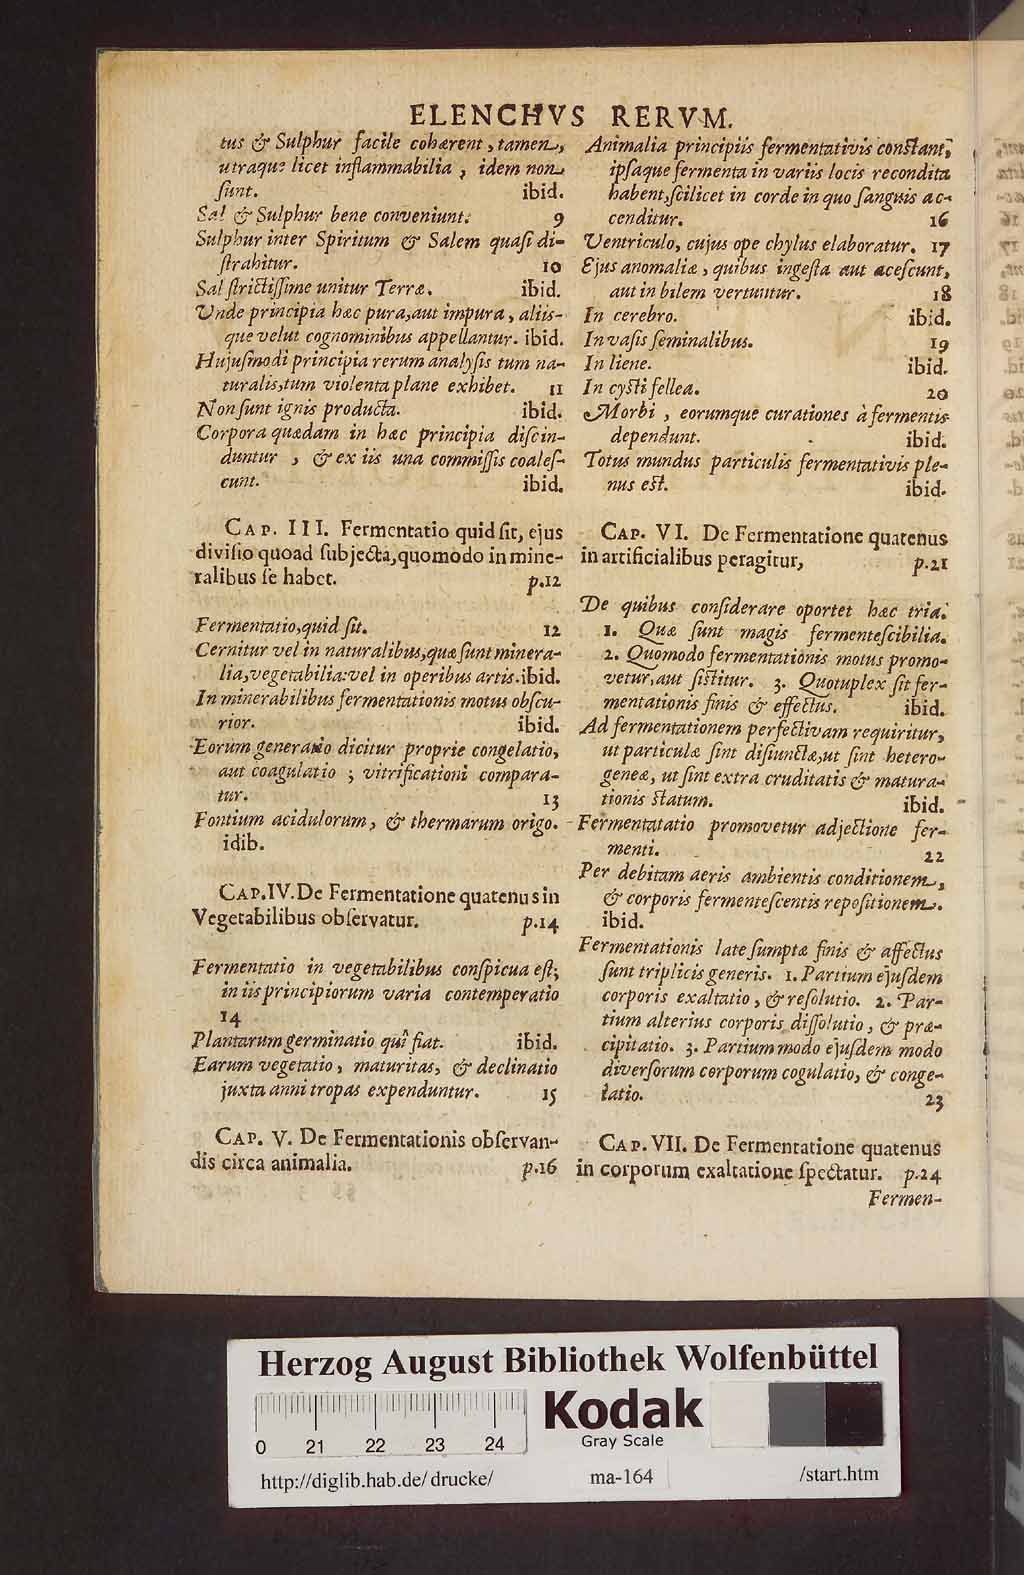 ELENCHVS RERVM.
tus & Sulphur facile cohærent, tamen,
utraque licet inflammabilia, idem non
ſunt. ibid.
Sal & Sulphur bene conveniunt. 9
Sulphur inter Spiritum & Salem quaſi di-
ſtrahitur. 10
Sal ſtrictiſſime unitur Terræ. ibid.
Unde principia hæc pura, aut impura, aliis-
que velut cognominibus appellantur. ibid.
Hujuſmodi principia rerum analyſis tum na-
turalis, tum violenta plane exhibet. 11
Non ſunt ignis producta. ibid.
Corpora quædam in hæc principia diſcin-
duntur, & ex iis una commiſſis coaleſ-
cunt. ibid.
CAP. III. Fermentatio quid ſit, ejus
diviſio quoad ſubjecta, quomodo in mine-
ralibus ſe habet. p.12
Fermentatio, quid ſit. 12
Cernitur vel in naturalibus, quæ ſunt minera-
lia, vegetabilia: vel in operibus artis. ibid.
In minerabilibus fermentationis motus obſcu-
rior. ibid.
Eorum generatio dicitur proprie congelatio,
aut coagulatio; vitrificationi compara-
tur. 13
Fontium acidulorum, & thermarum origo.
idib.
CAP. IV. De Fermentatione quatenus in
Vegetabilibus obſervatur. p.14
Fermentatio in vegetabilibus conſpicua eſt;
in iis principiorum varia contemperatio
14
Plantarum germinatio quî fiat. ibid.
Earum vegetatio, maturitas, & declinatio
juxta anni tropas expenduntur. 15
CAP. V. De Fermentationis obſervan-
dis circa animalia. p.16
Animalia principiis fermentativis conſtant,
ipſaque fermenta in variis locis recondita
habent, ſcilicet in corde in quo ſanguis ac-
cenditur. 16
Ventriculo, cujus ope chylus elaboratur. 17
Ejus anomaliæ, quibus ingeſta aut aceſcunt,
aut in bilem vertuntur. 18
In cerebro. ibid.
In vaſis ſeminalibus. 19
In liene. ibid.
In cyſti fellea. 20
Morbi, eorumque curationes à fermentis
dependunt. ibid.
Totus mundus particulis fermentativis ple-
nus eſt. ibid.
CAP. VI. De Fermentatione quatenus
in artificialibus peragitur, p.21
De quibus conſiderare oportet hæc tria.
1. Quæ ſunt magis fermenteſcibilia.
2. Quomodo fermentationis motus promo-
vetur, aut ſiſtitur. 3. Quotuplex ſit fer-
mentationis finis & effectus. ibid.
Ad fermentationem perfectivam requiritur,
ut particulæ ſint diſiunctæ, ut ſint hetero-
geneæ, ut ſint extra cruditatis & matura-
tionis ſtatum. ibid.
Fermentatatio promovetur adjectione fer-
menti. 22
Per debitam aeris ambientis conditionem,
& corporis fermenteſcentis repoſitionem.
ibid.
Fermentationis late ſumptæ finis & affectus
ſunt triplicis generis. 1. Partium ejuſdem
corporis exaltatio, & reſolutio. 2. Par-
tium alterius corporis diſſolutio, & præ-
cipitatio. 3. Partium modo ejuſdem modo
diverſorum corporum cogulatio, & conge-
latio. 23
CAP. VII. De Fermentatione quatenus
in corporum exaltatione ſpectatur. p.24
Fermen-
Herzog August Bibliothek Wolfenbüttel
0 21 22 23 24
Kodak
Gray Scale
http://diglib.hab.de/drucke/ ma-164 /start.htm